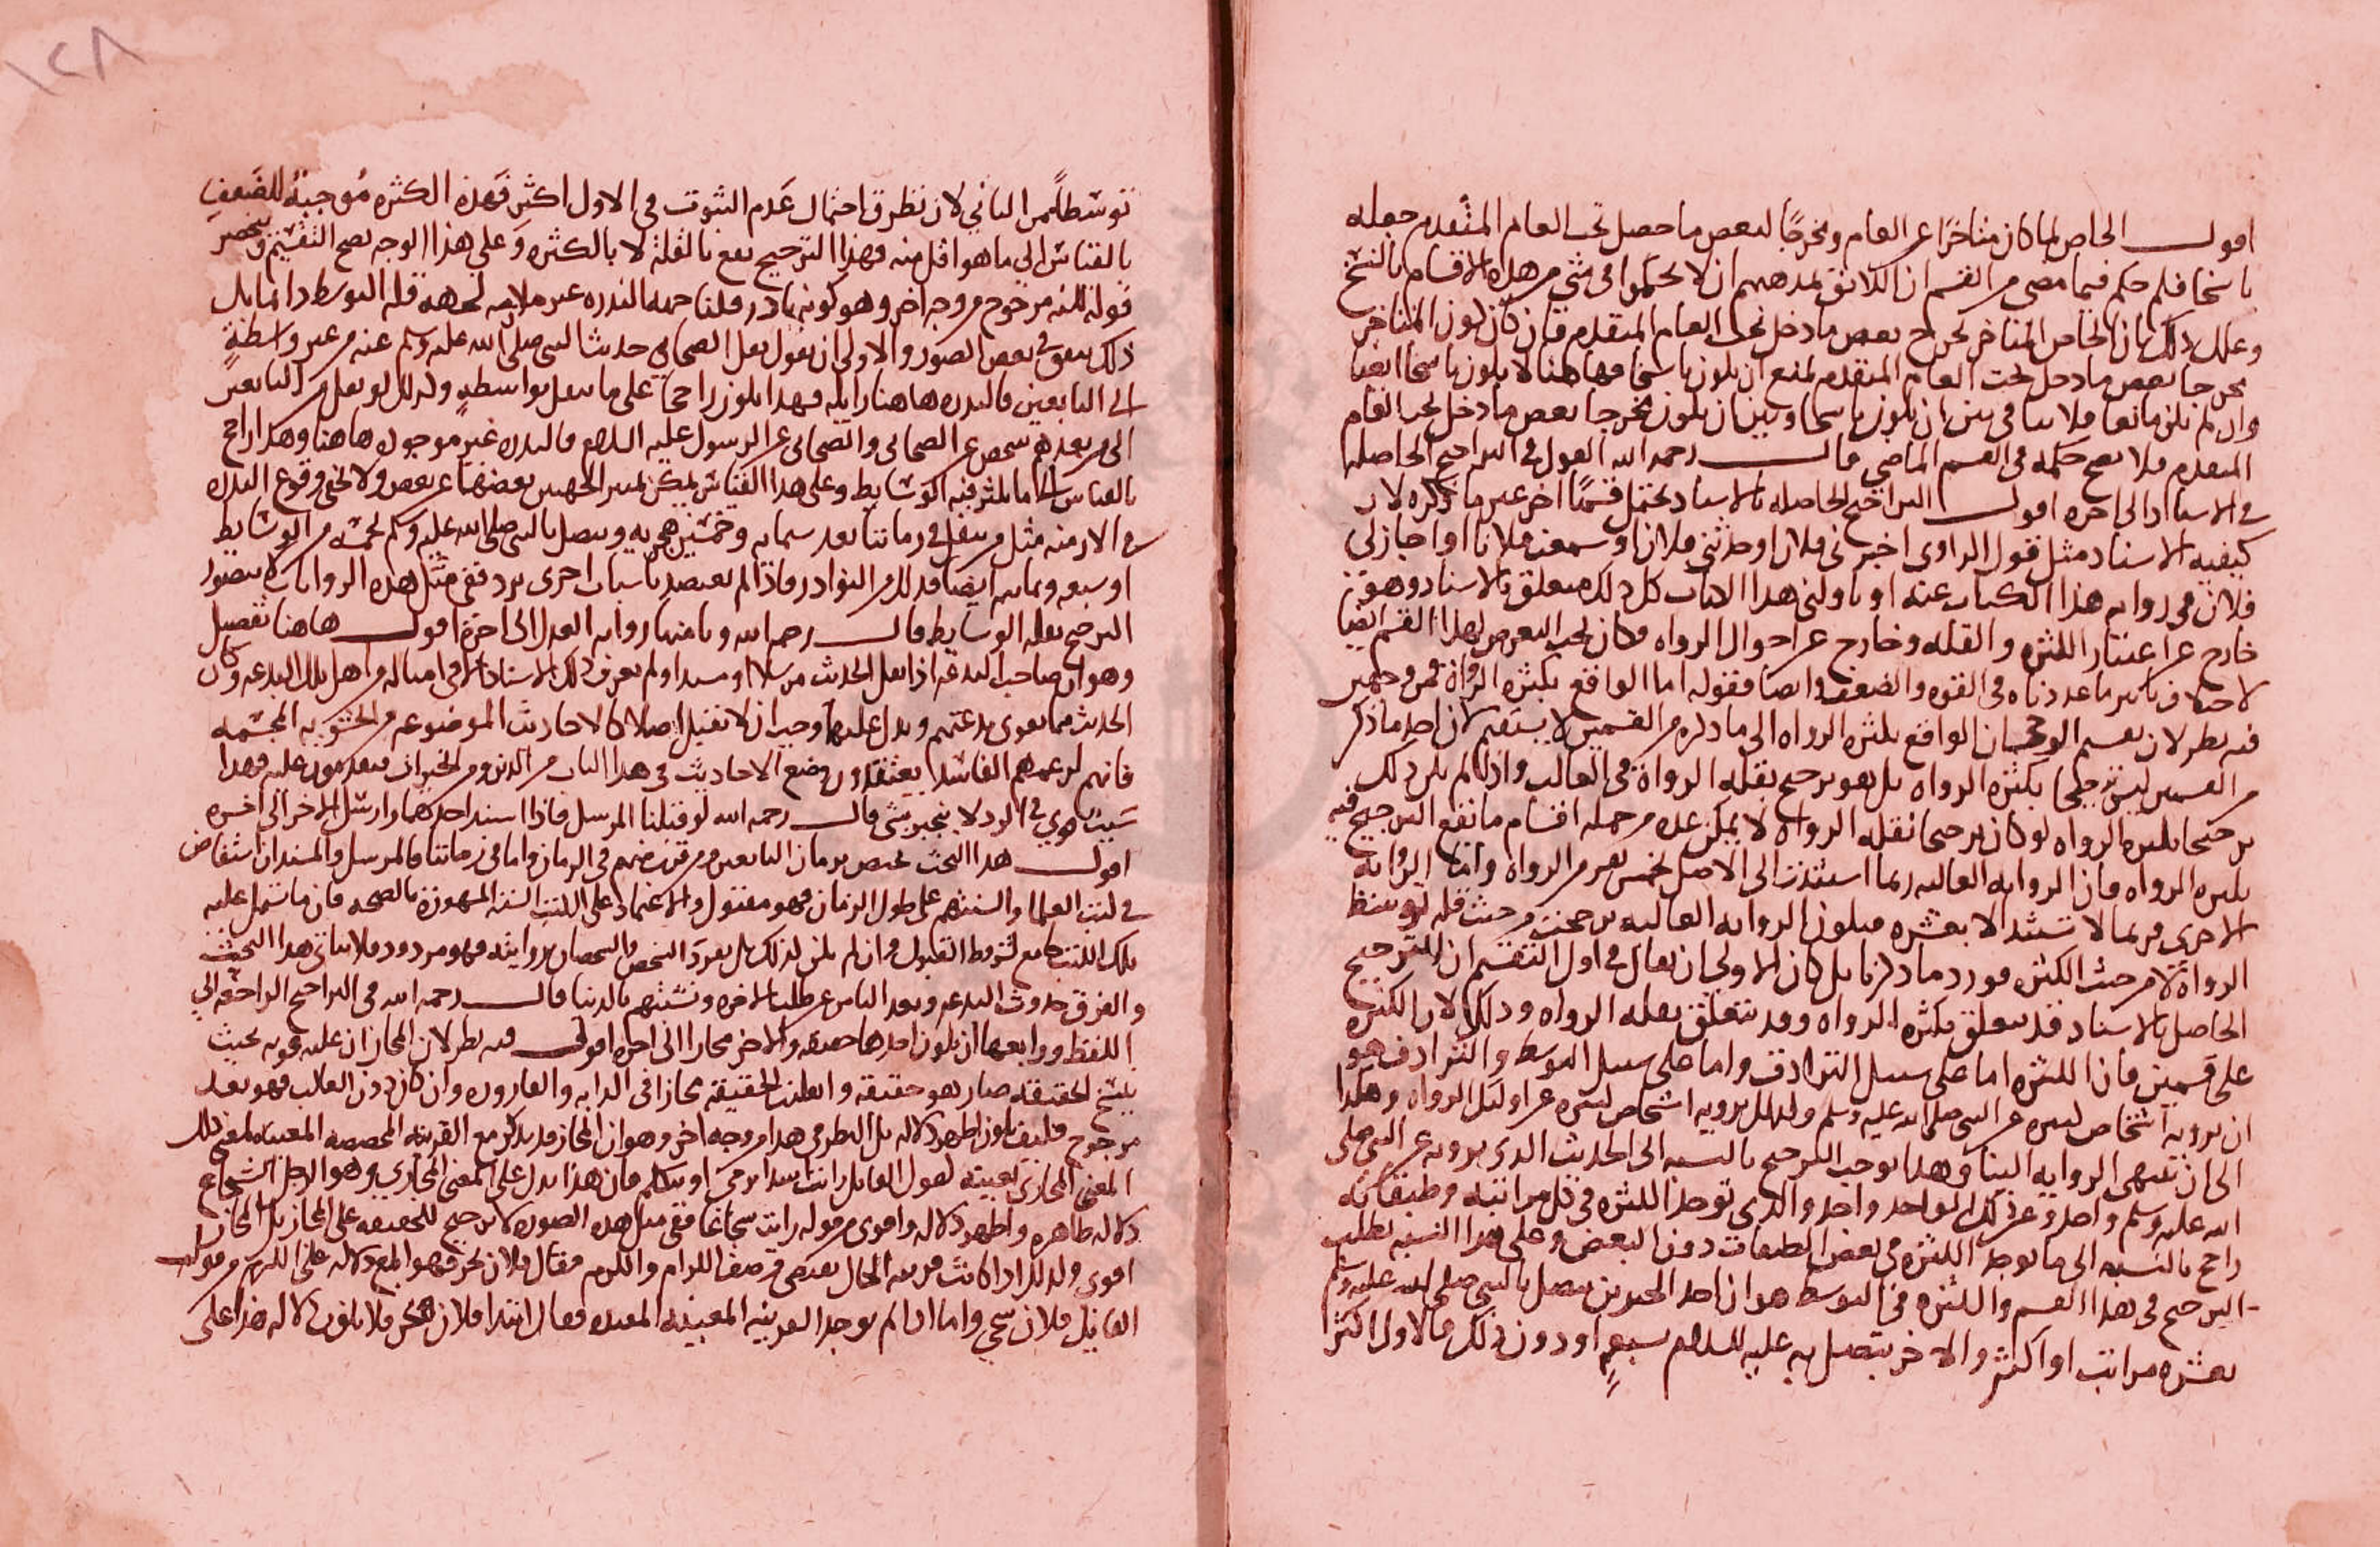 اقول الخاص لما كان متاخرا عن العام ومخرجا لبعض ما حصل تحت العام المتقدم جعله
ناسخا فلم حكم فيما مضى من القسم ان اللائق بمذهبهم ان لا يحكموا في شي من هذه الاقسام بالنسخ
وعلل ذلك بان الخاص المتاخر يخرج بعض ما دخل تحت العام المتقدم فان كان كون المتاخر
مخرجا بعض ما دخل تحت العام المتقدم يمنع ان يكون ناسخا فهاهنا لا يكون ناسخا ايضا
وان لم يكن مانعا فلا ينافي بين ان يكون ناسخا وبين ان يكون مخرجا بعض ما دخل تحت العام
المتقدم فلا يصح حكمه في القسم الماضي قال رحمه الله القول في التراجيح الحاصلة
في الاسناد الى اخره اقول التراجيح الحاصلة بالاسناد يحتمل قسما اخر غير ما ذكره لان
كيفية الاسناد مثل قول الراوي اخبرني فلان او حدثني فلان او سمعت فلانا او اجاز لي
فلان في رواية هذا الكتاب عنه او ناولني هذا الكتاب كل ذلك متعلق بالاسناد وهو
خارج عن اعتبار الكثرة والقلة وخارج عن احوال الرواة وكان يجب التعرض لهذا القسم ايضا
لاختلاف تاثير ما عددناه في القوة والضعف وايضا فقوله اما الواقع بكثرة الرواة فمن وجهين
فيه نظر لان تقسيم الواقع بكثرة الرواة الى ما ذكره من القسمين لا يستقيم لان احد ما ذكر
من القسمين ليس ترجيحا بكثرة الرواة بل هو ترجيح بقلة الرواة في الغالب واذا لم يكن ذلك
ترجيحا بكثرة الرواة لو كان ترجيحا بقلة الرواة لا يمكن عده من جملة اقسام ما يقع الترجيح فيه
بكثرة الرواة فان الرواية العالية ربما استندت الى الاصل بخمس نفر من الرواة واما الرواية
الاخرى فربما لا تستند الا بعشرة فيكون الرواية العالية ترجحت من حيث قلة توسط
الرواة لا من حيث الكثرة فورد ما ذكرنا بل كان الاولى ان يقال في اول التقسيم ان الترجيح
الحاصل بالاسناد قد يتعلق بكثرة الرواة وقد يتعلق بقلة الرواة وذلك لان الكثرة
على قسمين فان الكثرة اما على سبيل الترادف واما على سبيل التوسط والترادف هو
ان يرويه اشخاص كثيرة عن النبي صلى الله عليه وسلم وكذلك يرويه اشخاص كثيرة عن اولئك الرواة وهكذا
الى ان تنتهي الرواية الينا وهذا يوجب الترجيح بالنسبة الى الحديث الذي يرويه عن النبي صلى
الله عليه وسلم واحد وعن ذلك الواحد واحد والذي توجد الكثرة في كل مراتبه وطبقاته
راجح بالنسبة الى ما يوجد الكثرة في بعض الطبقات دون البعض وعلى هذا النسبة يطلب
الترجيح في هذا القسم والكثرة في التوسط هو ان احد الخبرين يتصل بالنبي صلى الله عليه وسلم
بعشرة مراتب او اكثر والاخر يتصل به عليه السلام بسبع او دون ذلك فالاول اكثر
توسطا من الثاني لان تطرق احتمال عدم الثبوت في الاول اكثر فهذه الكثرة موجبة للضعف
بالقياس الى ما هو اقل منه فهذا الترجيح يقع بالقلة لا بالكثرة وعلى هذا الوجه يصح التقسيم وينحصر
قوله لكنه مرجوح من وجه اخر وهو كونه نادر قلنا جهة الندرة غير ملازمة لجهة قلة التوسط دائما بل
ذلك يتفق في بعض الصور والاولى ان يقول نقل الصحابي حديث النبي صلى الله عليه وسلم عنه من غير واسطة
الى التابعين فالندرة هاهنا زايلة فهذا يكون راجحا على ما ينقل بواسطة وكذلك لو نقل من التابعين
الى من بعدهم شخص عن الصحابي والصحابي عن الرسول عليه السلام فالندرة غير موجودة هاهنا وهكذا راجح
بالقياس الى ما يكثر فيه الوسايط وعلى هذا القياس يمكن تمييز الجهتين بعضهما عن بعض ولا يخفى وقوع الندرة
في الازمنة مثل من ينقل في زماننا بعد ستمايه وخمسين هجرية ويتصل بالنبي صلى الله عليه وسلم بخمسة من الوسايط
او سبعة وثمانية ايضا فذلك من النوادر فاذا لم يعتضد باسباب اخرى يرد ففي مثل هذه الروايات لا يتصور
الترجيح بقلة الوسايط قال رحمه الله وثامنها رواية العدل الى اخره اقول هاهنا تفصيل
وهو ان صاحب البدعة اذا نقل الحديث مرسلا او مسندا ولم يعرف ذلك الاسناد الا في امثاله من اهل تلك البدعة وكان
الحديث مما يقوي بدعتهم ويدل عليها وجب ان لا تقبل اصلا كالاحاديث الموضوعة من الحشوية المجسمة
فانهم لزعمهم الفاسد يعتقدون وضع الاحاديث في هذا الباب من الدين ومن الخيرات فيقدمون عليه فهذا
سبب قوي في الرد لا ينجبر بشي قال رحمه الله لو قبلنا المرسل فاذا اسند احدهما وارسل الاخر الى اخره
اقول هذا البحث مختص بزمان التابعين ومن قرنهم في الزمان واما في زماننا فالمرسل والمسند ان استفاض
في كتب العلما والسنتهم على طول الزمان فهو مقبول والاعتماد على الكتب الستة المشهورة بالصحة فان ما تشتمل عليه
تلك الكتب جامع لشروط القبول وان لم يكن كذلك بل تفرد الشخص والشخصان بروايته فهو مردود فلا يتاتى هذا البحث
والفرق حدوث البدعة وبعد الناس عن طلب الاخرة وتشبثهم بالدنيا قال رحمه الله في التراجيح الراجعة الى
اللفظ ورابعها ان يكون احدها حقيقة والاخر مجازا الى اخره اقول فيه نظر لان المجاز ان غلب قوته بحيث
ينسخ الحقيقة صار هو حقيقة وانقلبت الحقيقة مجازا في الدابة والقارورة وان كان دون الغالب فهو بعد
مرجوح فكيف يكون اظهر دلالة بل النظر في هذا من وجه اخر وهو ان المجاز قد يذكر مع القرينة المخصصة المعينة لمعنى ذلك
المعنى المجازي بعينه كقول القائل رايت اسدا يرمي او يتكلم فان هذا يدل على المعنى المجازي وهو الرجل الشجاع
دلالة ظاهرة واظهر دلالة واقوى من قوله رايت شجاعا ففي مثل هذه الصورة لا ترجيح للحقيقة على المجاز بل المجاز
اقوى وكذلك اذا كانت قرينة الحال تقتضي وصف الكرام والكرم فقال فلان بحر فهو ابلغ دلالة على الكرم من قول
القائل فلان سخي واما اذا لم يوجد القرينة المعينة المقيدة فقال ابتدا فلان بحر فلا يكون دلالة هذا على